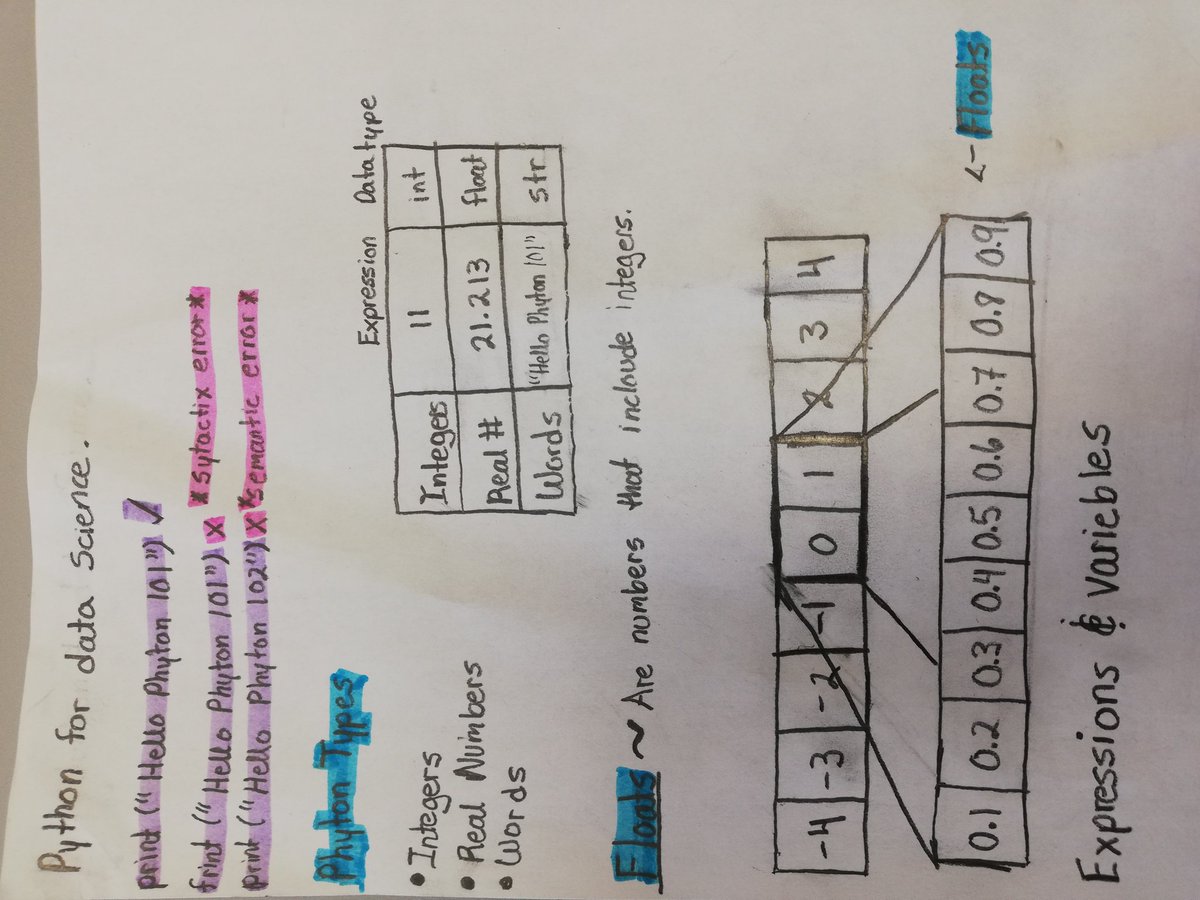 Python for data Science.
print ("Hello Phyton 101") ✓
frint ("Hello Phyton 101") x *sytactix error*
print ("Hello Phyton 102") x *semantic error*
Phyton Types
• Integers
• Real Numbers
• Words
Expression Data type
Integers 11 int
Real # 21.213 float
Words "Hello Phyton 101" str
Floats ~ Are numbers that incloude integers.
-4 -3 -2 -1 0 1 2 3 4
0.1 0.2 0.3 0.4 0.5 0.6 0.7 0.8 0.9 <- Floats
Expressions & Variebles